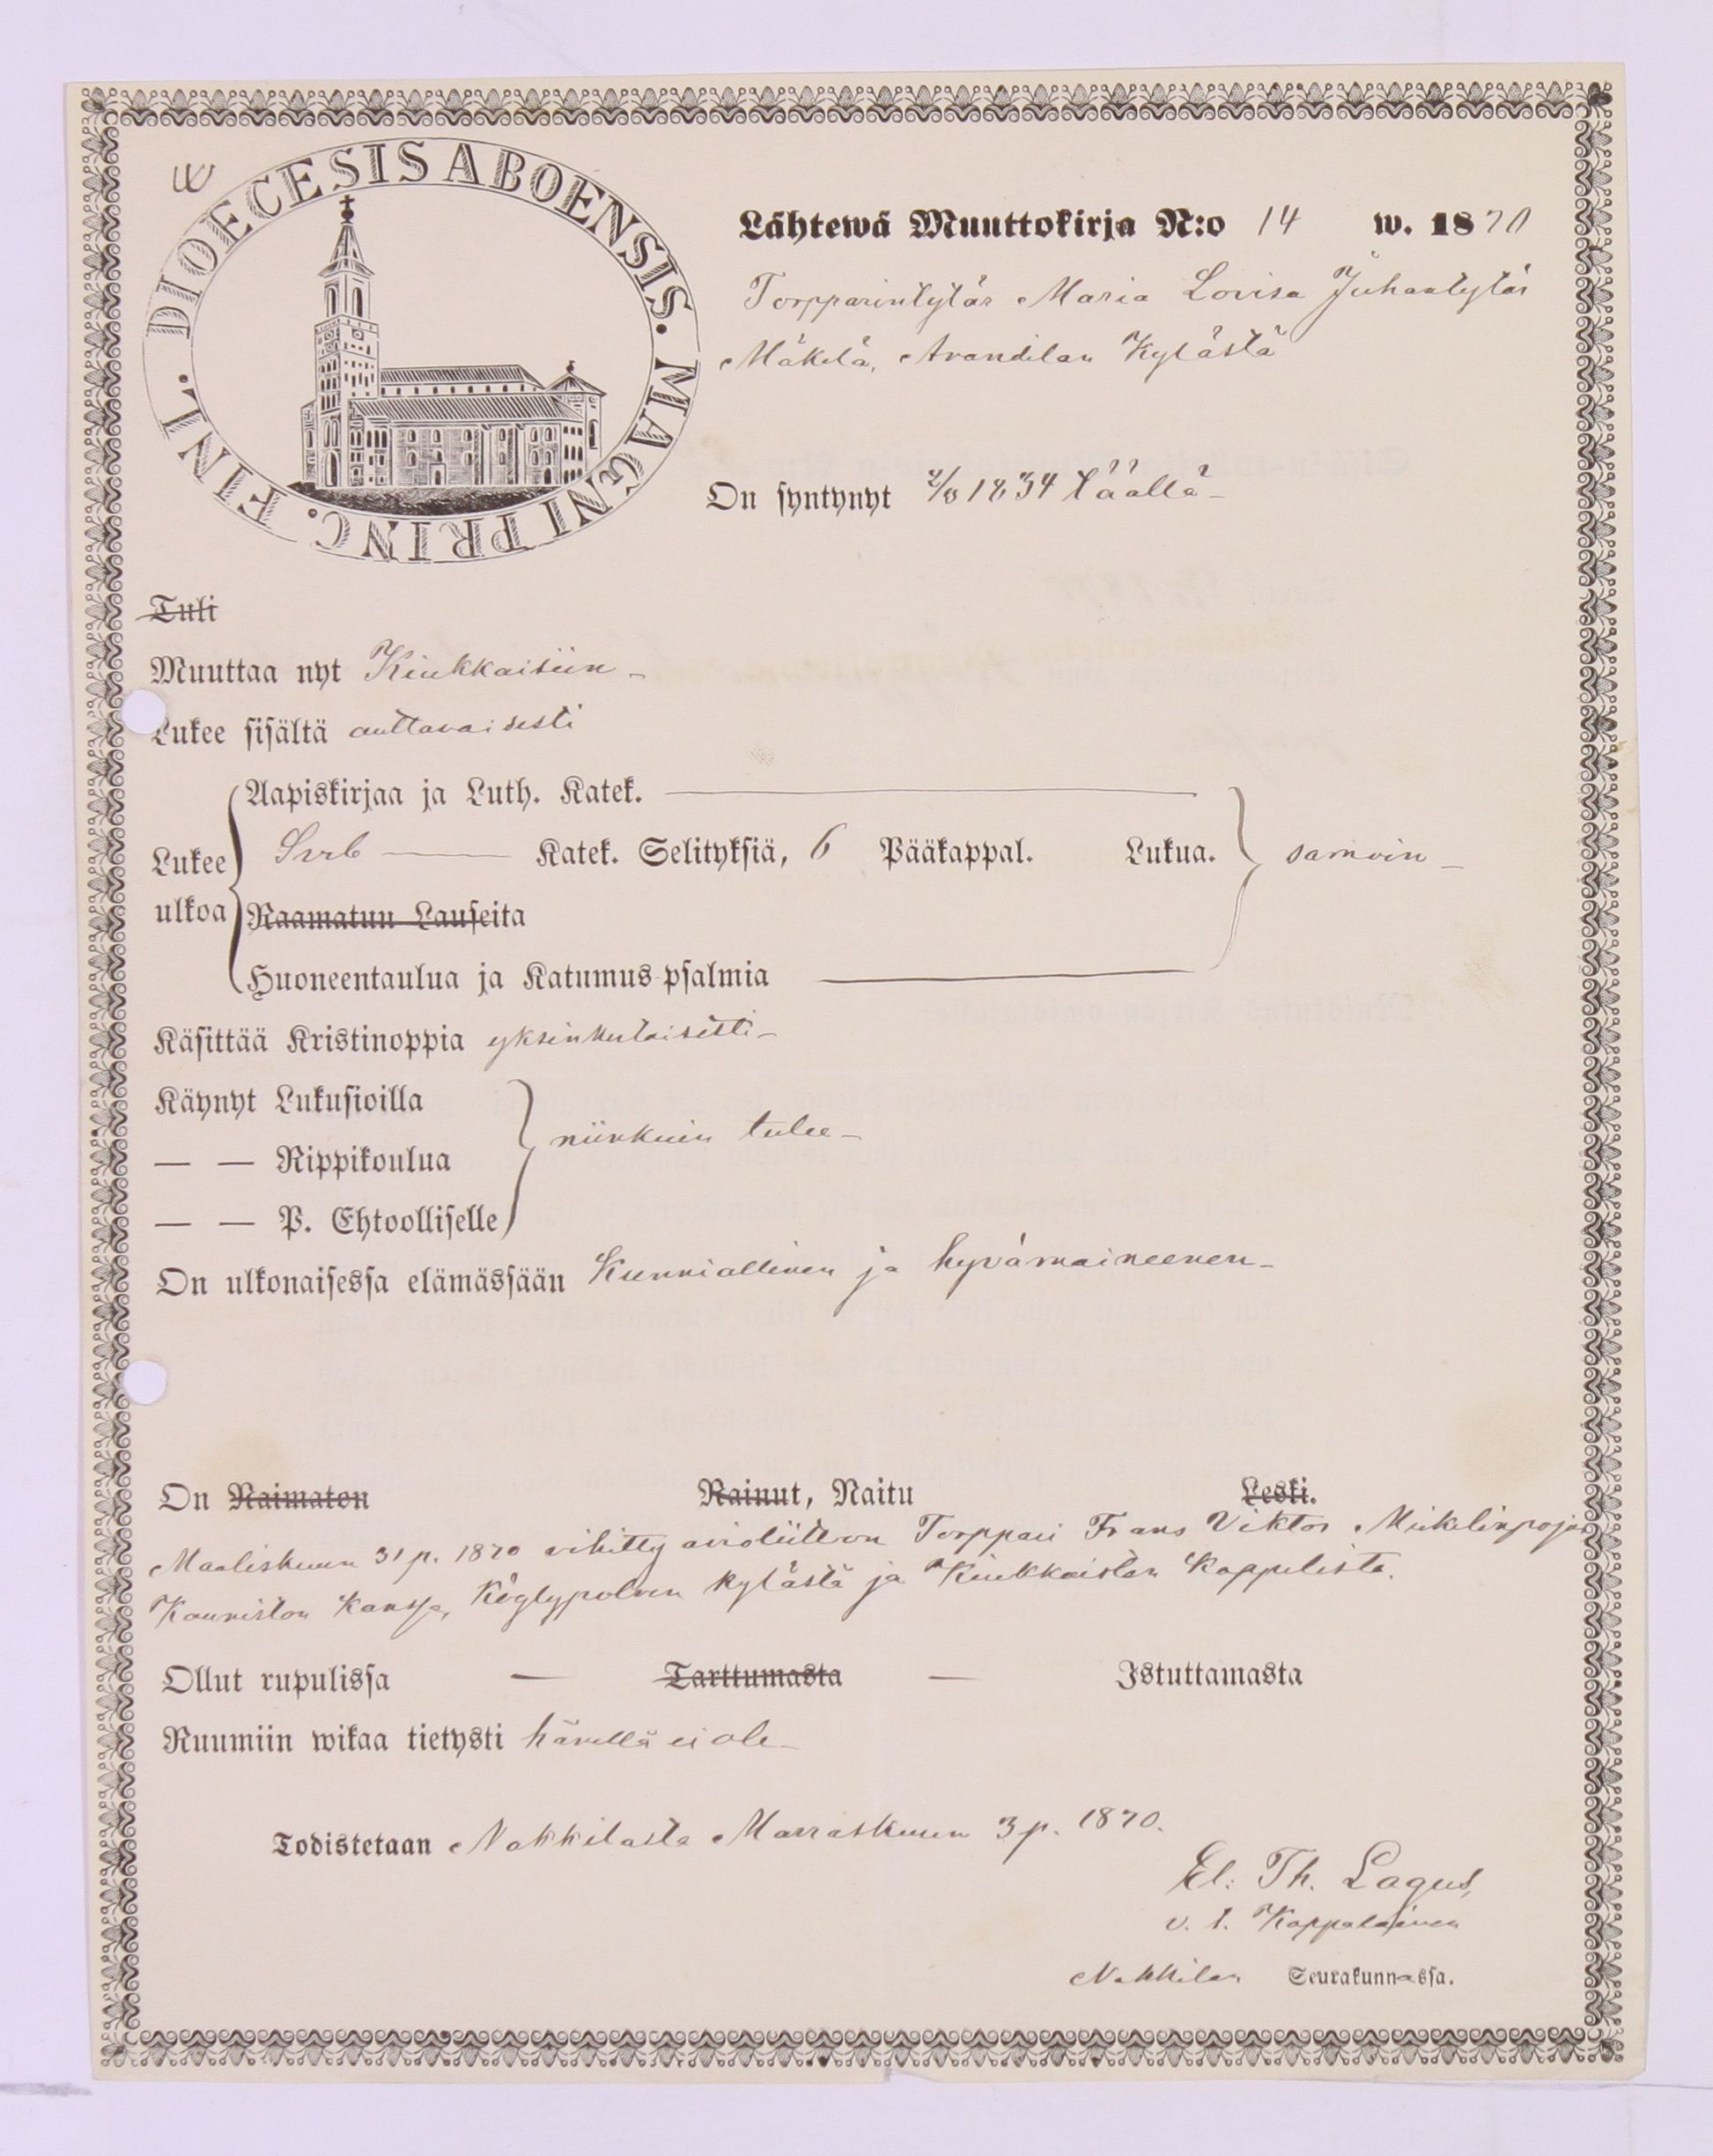 DIOECESIS ABOENSIS. MAGNI PRINC. FINL.
Lähtewä Muuttokirja N:o 14 w. 1870
Torpparintytär Maria Lovisa Juhantytär
Mäkelä, Arandilan Kylästä
On syntynyt 2/8 1834 täällä
Tuli
Muuttaa nyt Kiukkaisiin
Lukee sisältä auttavaisesti
Aapiskirjaa ja Luth. Katek.
Lukee Svrb Katek. Selityksiä, 6 Pääkappal. Lukua. samoin
ulkoa Raamatun Lauseita
Huoneentaulua ja Katumus-psalmia
Käsittää Kristinoppia yksinkertaisesti
Käynyt Lukusioilla
— — Rippikoulua niinkuin tulee
— — P. Ehtoolliselle
On ulkonaisessa elämässään Kunniallinen ja hyvämaineenen
On Naimaton Nainut, Naitu Leski.
Maaliskuun 31 p. 1870 vihitty avioliittoon Torppari Frans Viktor Mikelinpojan
Kauniston kanssa, Köylypolven kylästä ja Kiukkaisten Kappelista.
Ollut rupulissa — Tarttumasta — Istuttamasta
Ruumiin wikaa tietysti hänellä ei ole
Todistetaan Nakkilasta Marraskuun 3 p. 1870.
El: Th. Lagus,
v. t. Kappalainen
Nakkilan Seurakunnassa.